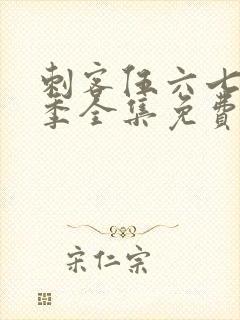 刺客伍六七
季全集免费
宋仁宗